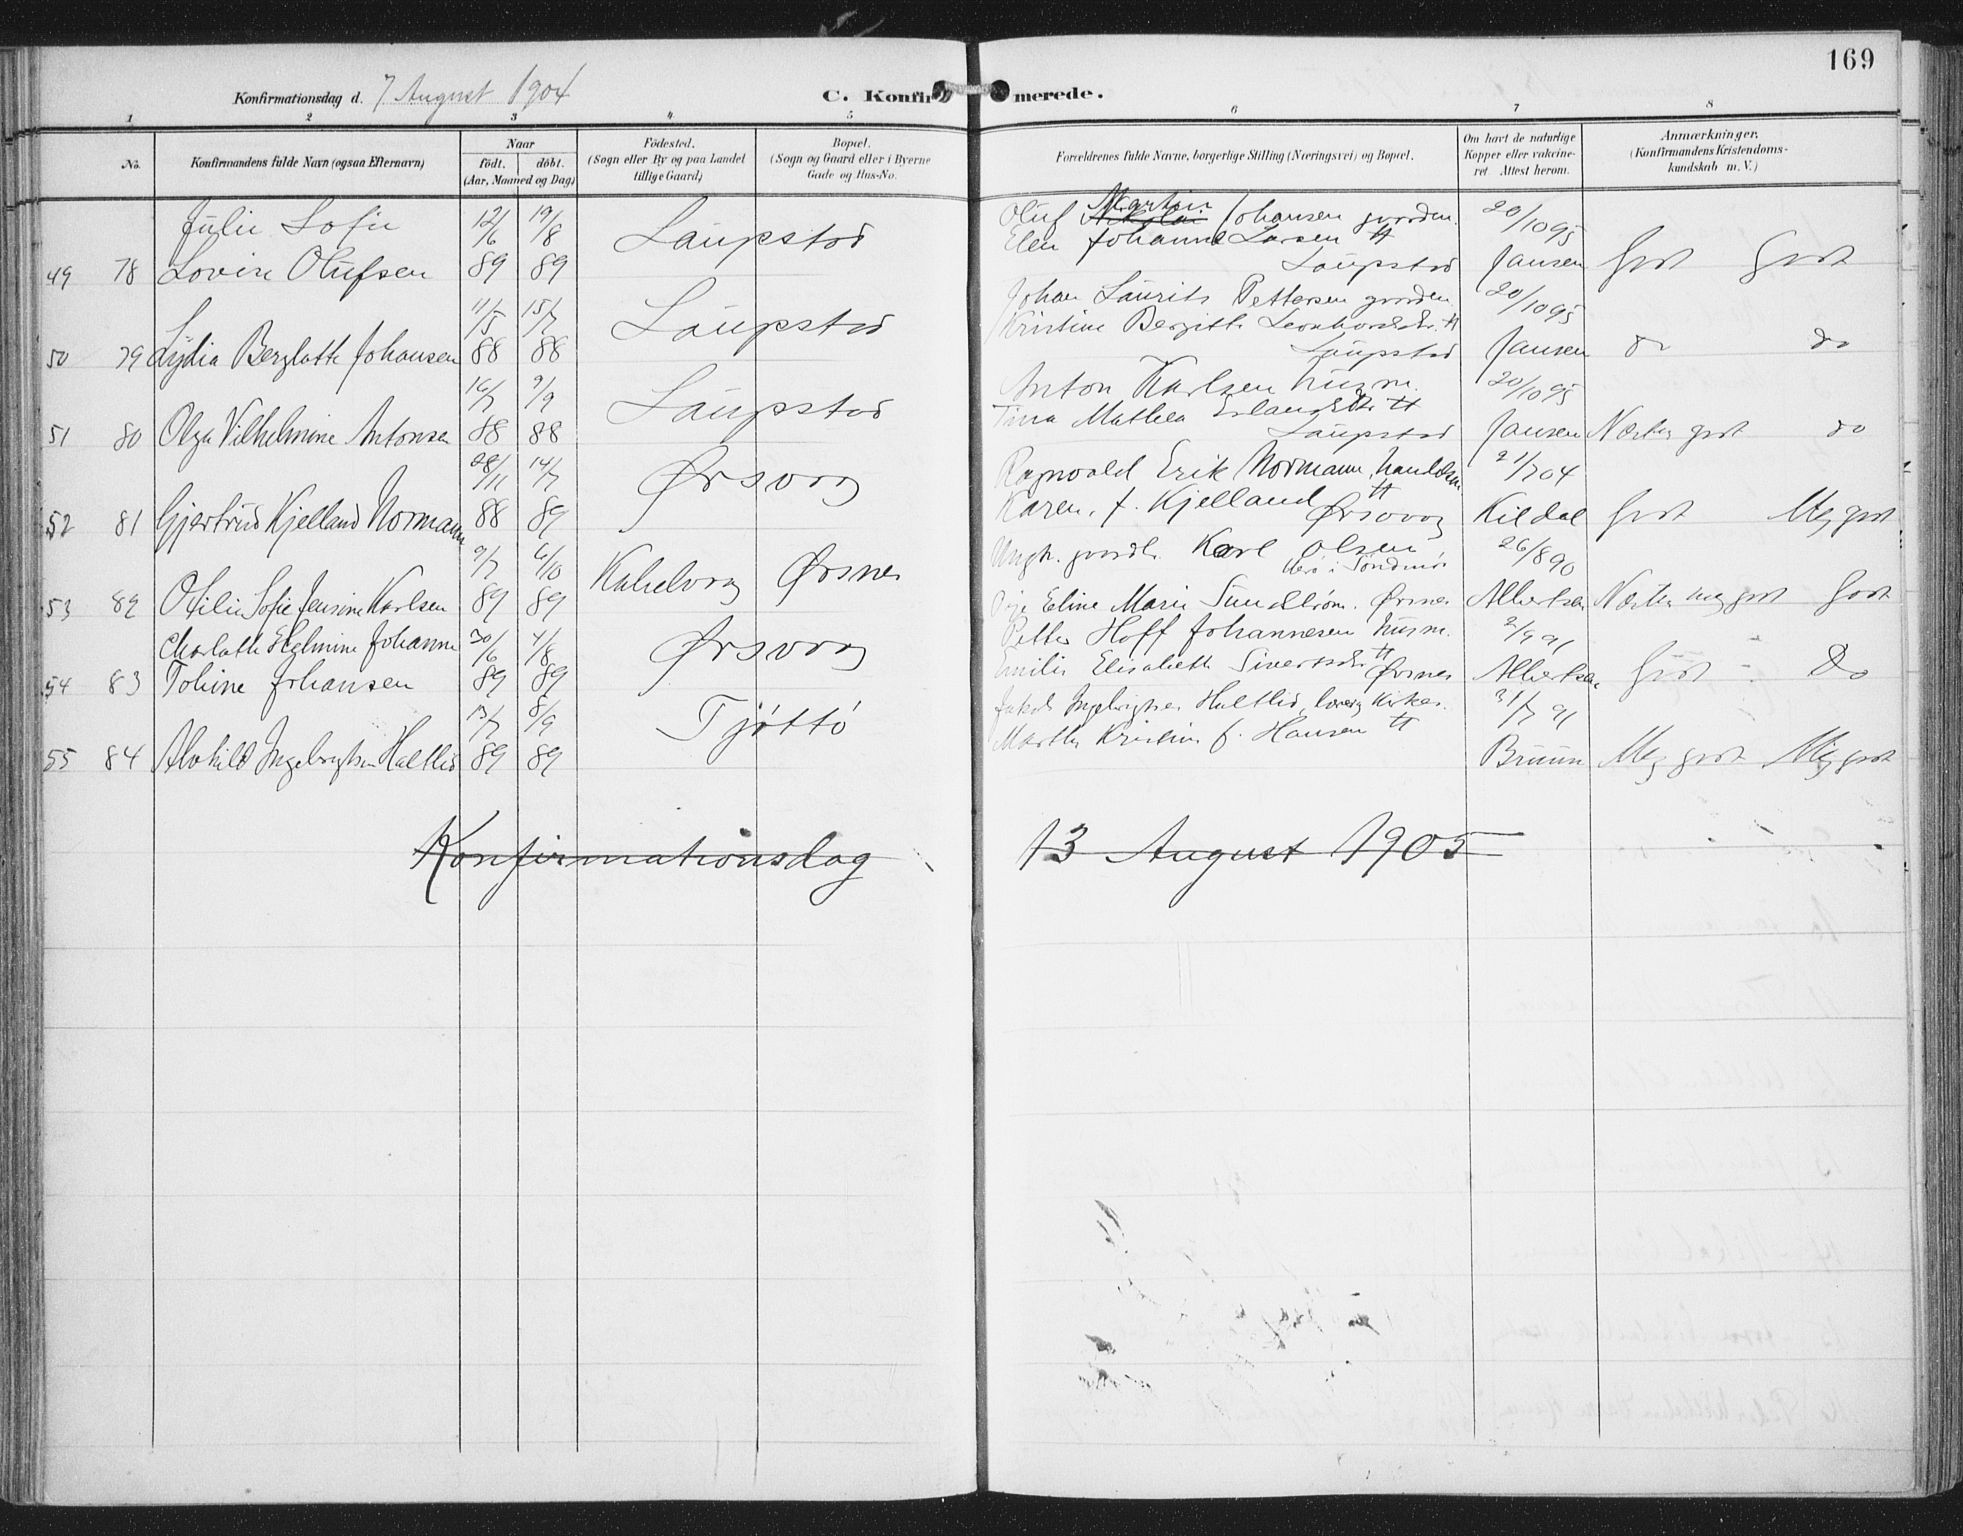 169
Konfirmationsdag d. 7 August 1904
C. Konfirmerede.
1 2 3 4 5 6 7 8
No.
Konfirmandens fulde Navn (ogsaa Efternavn)
Naar
födt. döbt.
(Aar, Maaned og Dag)
Födested.
(Sogn eller By og paa Landet
tillige Gaard)
Bopæl.
(Sogn og Gaard eller i Byerne
Gade og Hus-No.
Forældrenes fulde Navne, borgerlige Stilling (Næringsvei) og Bopæl.
Om havt de naturlige
Kopper eller vakcine-
ret Attest herom.
Anmærkninger.
(Konfirmandens Kristendoms-
kundskab m. V.)
Julie Sofie 12/6 19/8 Laupstad Oluf Martin Johansen gaardm. 20/10 95
Elen Johanne Larsen
49 78 Lovise Olufsen 89 89 Laupstad Jansen Godt Godt
11/5 15/7 Laupstad Johan Laurits Pettersen gaardm. 20/10 95
Kristine Bergitte Leonhardsdtr
50 79 Lydia Berglotte Johansen 88 88 Laupstad Jansen do do
16/7 9/9 Laupstad Anton Karlsen husm. 20/10 95
Tina Mathea Erlandsdtr
51 80 Olga Vilhelmine Antonsen 88 88 Laupstad Jansen Næsten godt do
28/11 14/7 Ørsvaag Ragnvald Erik Normann, handelsm. 21/7 04
Karen, f. Kjelland
52 81 Gjertrud Kjelland Normann 88 89 Ørsvaag Kildal Godt Meg godt
9/7 6/10 Kabelvaag Ørsnes Ungk. gaardbr. Karl Olsen, 26/8 90
Herø i Søndmør
53 82 Otilie Sofie Jensine Karlsen 89 89 Pige Eline Marie Sundstrøm. Ørsnes Albertsen Næsten meg godt Godt
Charlotte Helmine Johanne 30/6 4/8 Ørsvaag Petter Hoff Johannesen husm. 2/9 91
Emilie Elisabeth Sivertsdtr
54 83 Toline Johansen 89 89 Ørsnes Albertsen Godt Do
13/7 8/9 Tjøttø Jakob Ingebrigtsen Haltlid, lærer, Kirkes. 31/7 91
Marthe Kristine f. Hansen
55 84 Alvhild Ingebrigtsen Haltlid 89 89 Bruun Meg godt Meg godt
Konfirmationsdag 13 August 1905